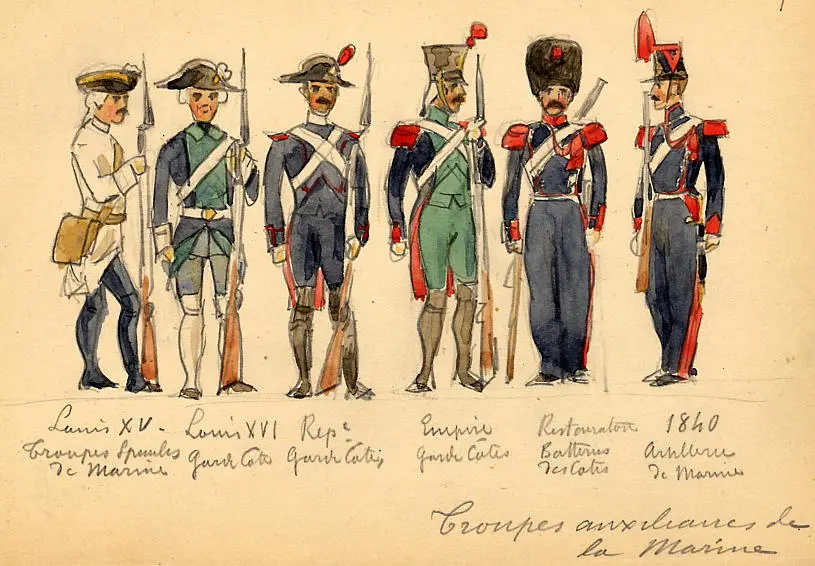 Louis XV -
Troupes Spéciales
de Marine
Louis XVI
Garde Côte
Repe
Garde Côtes
Empire
Garde Côtes
Restauration
Batteries
des Côtes
1840
Artillerie
de Marine
Troupes auxiliaires de
la Marine